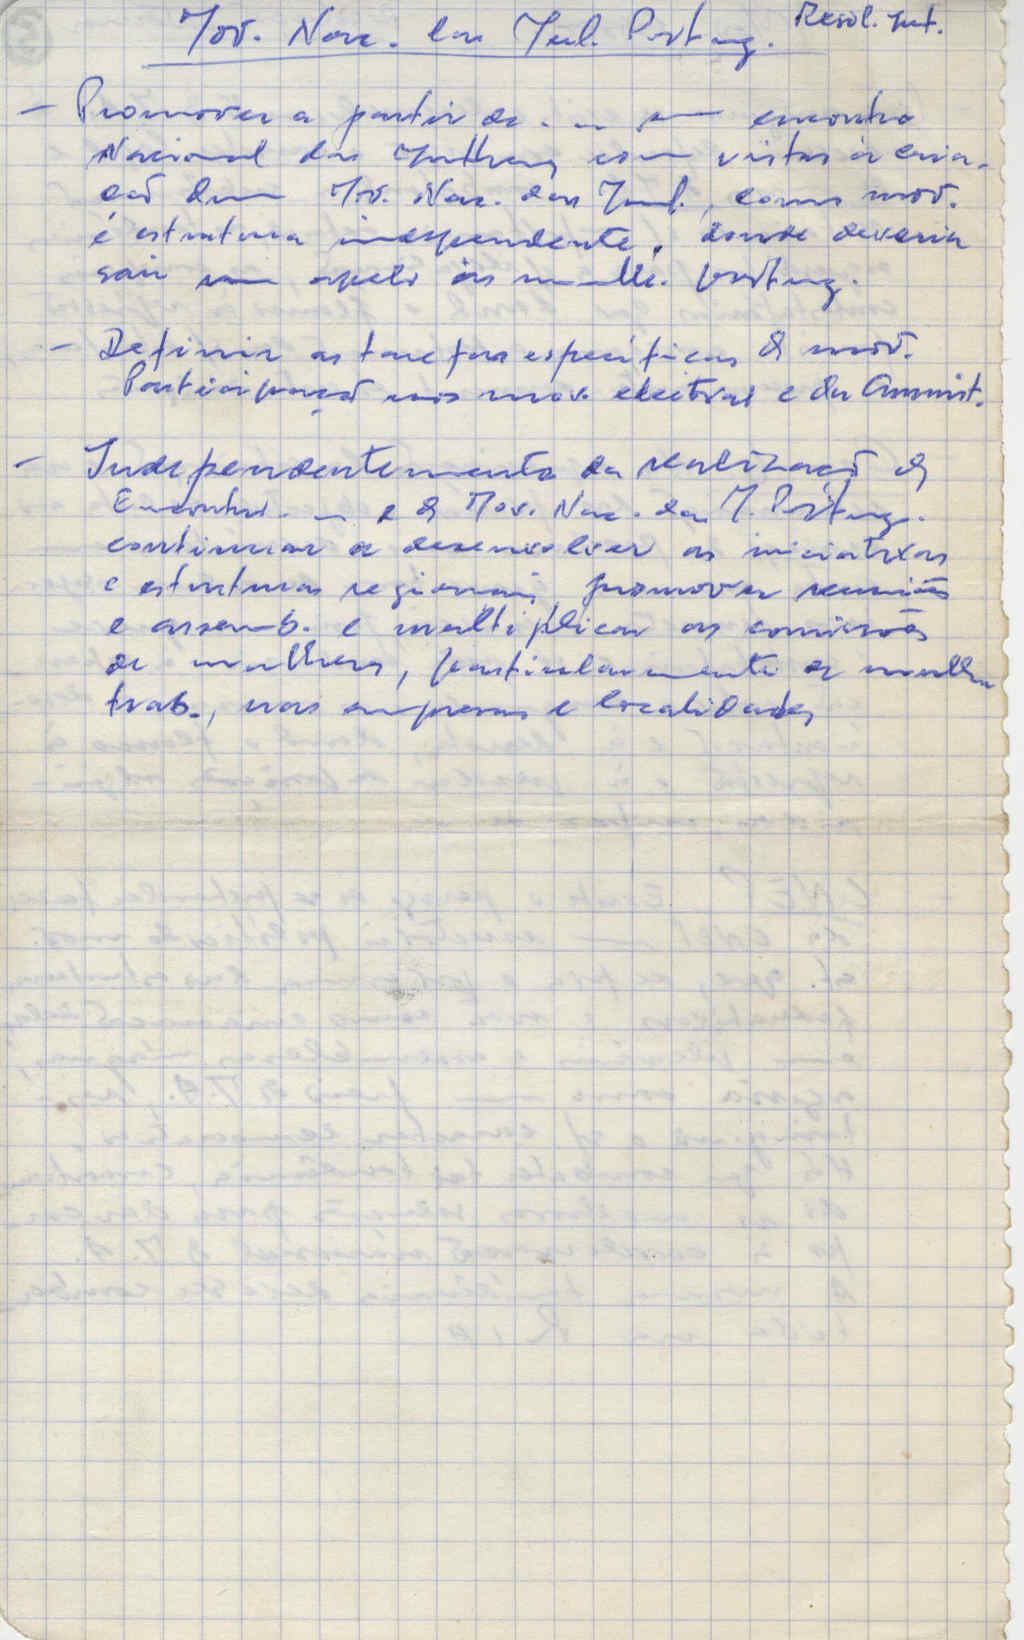 Resol. Int.
Mov. Nac. das Mul. Portug.
- Promover a partir de ... um encontro
Nacional das Mulheres com vistas à cria-
ção dum Mov. Nac. das Mul., como mov.
e estrutura independente, donde deveria
sair um apelo às mulhe. portug.
- Definir as tarefas específicas do mov.
Participação nos mov. eleitoral e da Amnist.
- Independentemente da realização do
Encontro ... e do Mov. Nac. das M. Portug.
continuar a desenvolver as iniciativas
e estruturas regionais, promover reuniões
e assemb. e multiplicar as comissões
de mulheres, particularmente de mulhe
trab., nas empresas e localidades